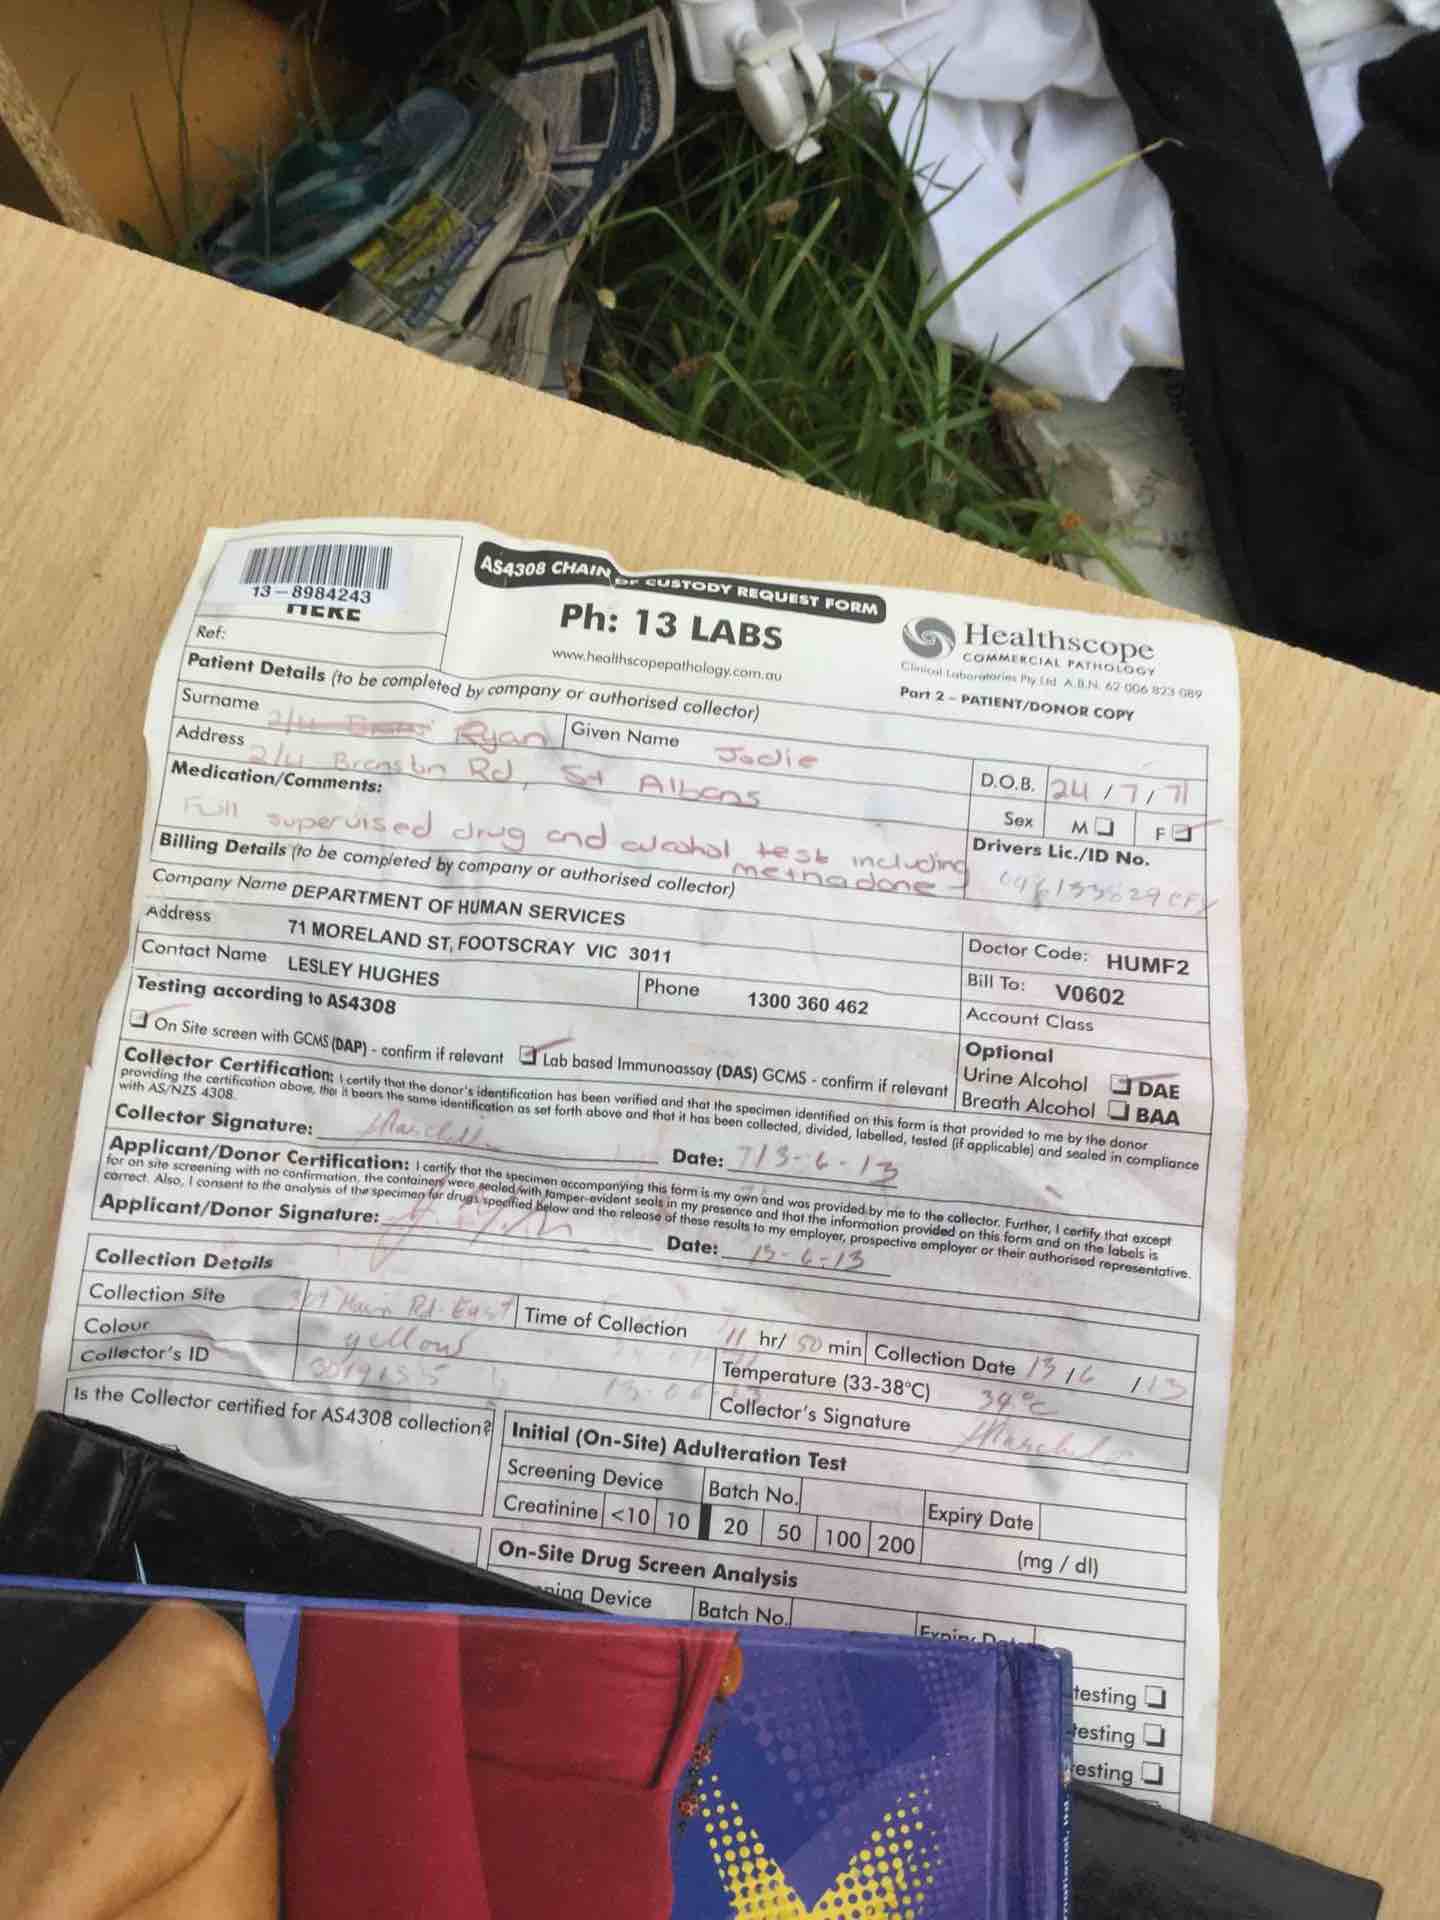 13-8984243
HERE
AS4308 CHAIN OF CUSTODY REQUEST FORM
Ph: 13 LABS
www.healthscopepathology.com.au
Healthscope
COMMERCIAL PATHOLOGY
Clinical Laboratories Pty Ltd A.B.N. 62 006 823 089
Part 2 - PATIENT/DONOR COPY
Ref:
Patient Details (to be completed by company or authorised collector)
Surname 2/4 Ryan Given Name Jodie
Address 2/4 Rd, St Albans
D.O.B. 24 / 7 / 71
Sex M F
Medication/Comments:
Full supervised drug and alcohol test including
methadone
Drivers Lic./ID No.
Billing Details (to be completed by company or authorised collector)
Company Name DEPARTMENT OF HUMAN SERVICES
Address 71 MORELAND ST, FOOTSCRAY VIC 3011
Contact Name LESLEY HUGHES Phone 1300 360 462
Doctor Code: HUMF2
Bill To: V0602
Account Class
Testing according to AS4308
On Site screen with GCMS (DAP) - confirm if relevant Lab based Immunoassay (DAS) GCMS - confirm if relevant
Optional
Urine Alcohol DAE
Breath Alcohol BAA
Collector Certification: I certify that the donor's identification has been verified and that the specimen identified on this form is that provided to me by the donor
providing the certification above, that it bears the same identification as set forth above and that it has been collected, divided, labelled, tested (if applicable) and sealed in compliance
with AS/NZS 4308.
Collector Signature: Date: 13-6-13
Applicant/Donor Certification: I certify that the specimen accompanying this form is my own and was provided by me to the collector. Further, I certify that except
for on site screening with no confirmation, the containers were sealed with tamper-evident seals in my presence and that the information provided on this form and on the labels is
correct. Also, I consent to the analysis of the specimen for drugs specified below and the release of these results to my employer, prospective employer or their authorised representative.
Applicant/Donor Signature: Date: 13-6-13
Collection Details
Collection Site Main Rd East Time of Collection 11 hr/ 50 min Collection Date 13/6 /13
Colour yellow Temperature (33-38°C) 34°C
Collector's ID Collector's Signature
Is the Collector certified for AS4308 collection?
Initial (On-Site) Adulteration Test
Screening Device Batch No. Expiry Date
Creatinine <10 10 20 50 100 200 (mg / dl)
On-Site Drug Screen Analysis
ning Device Batch No. Expiry Dat
testing
testing
esting